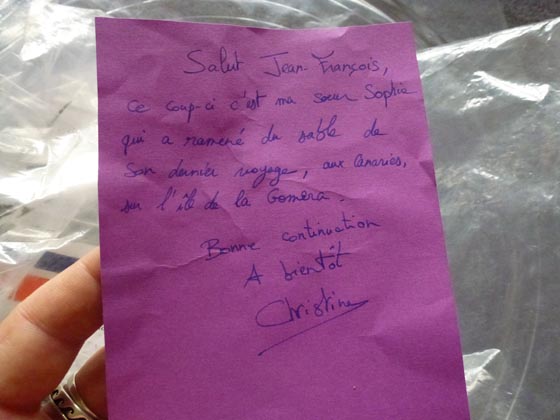 Salut Jean-François,
ce coup-ci c'est ma sœur Sophie
qui a ramené du sable de
son dernier voyage, aux Canaries,
sur l'île de la Gomera.
Bonne continuation
A bientôt
Christine